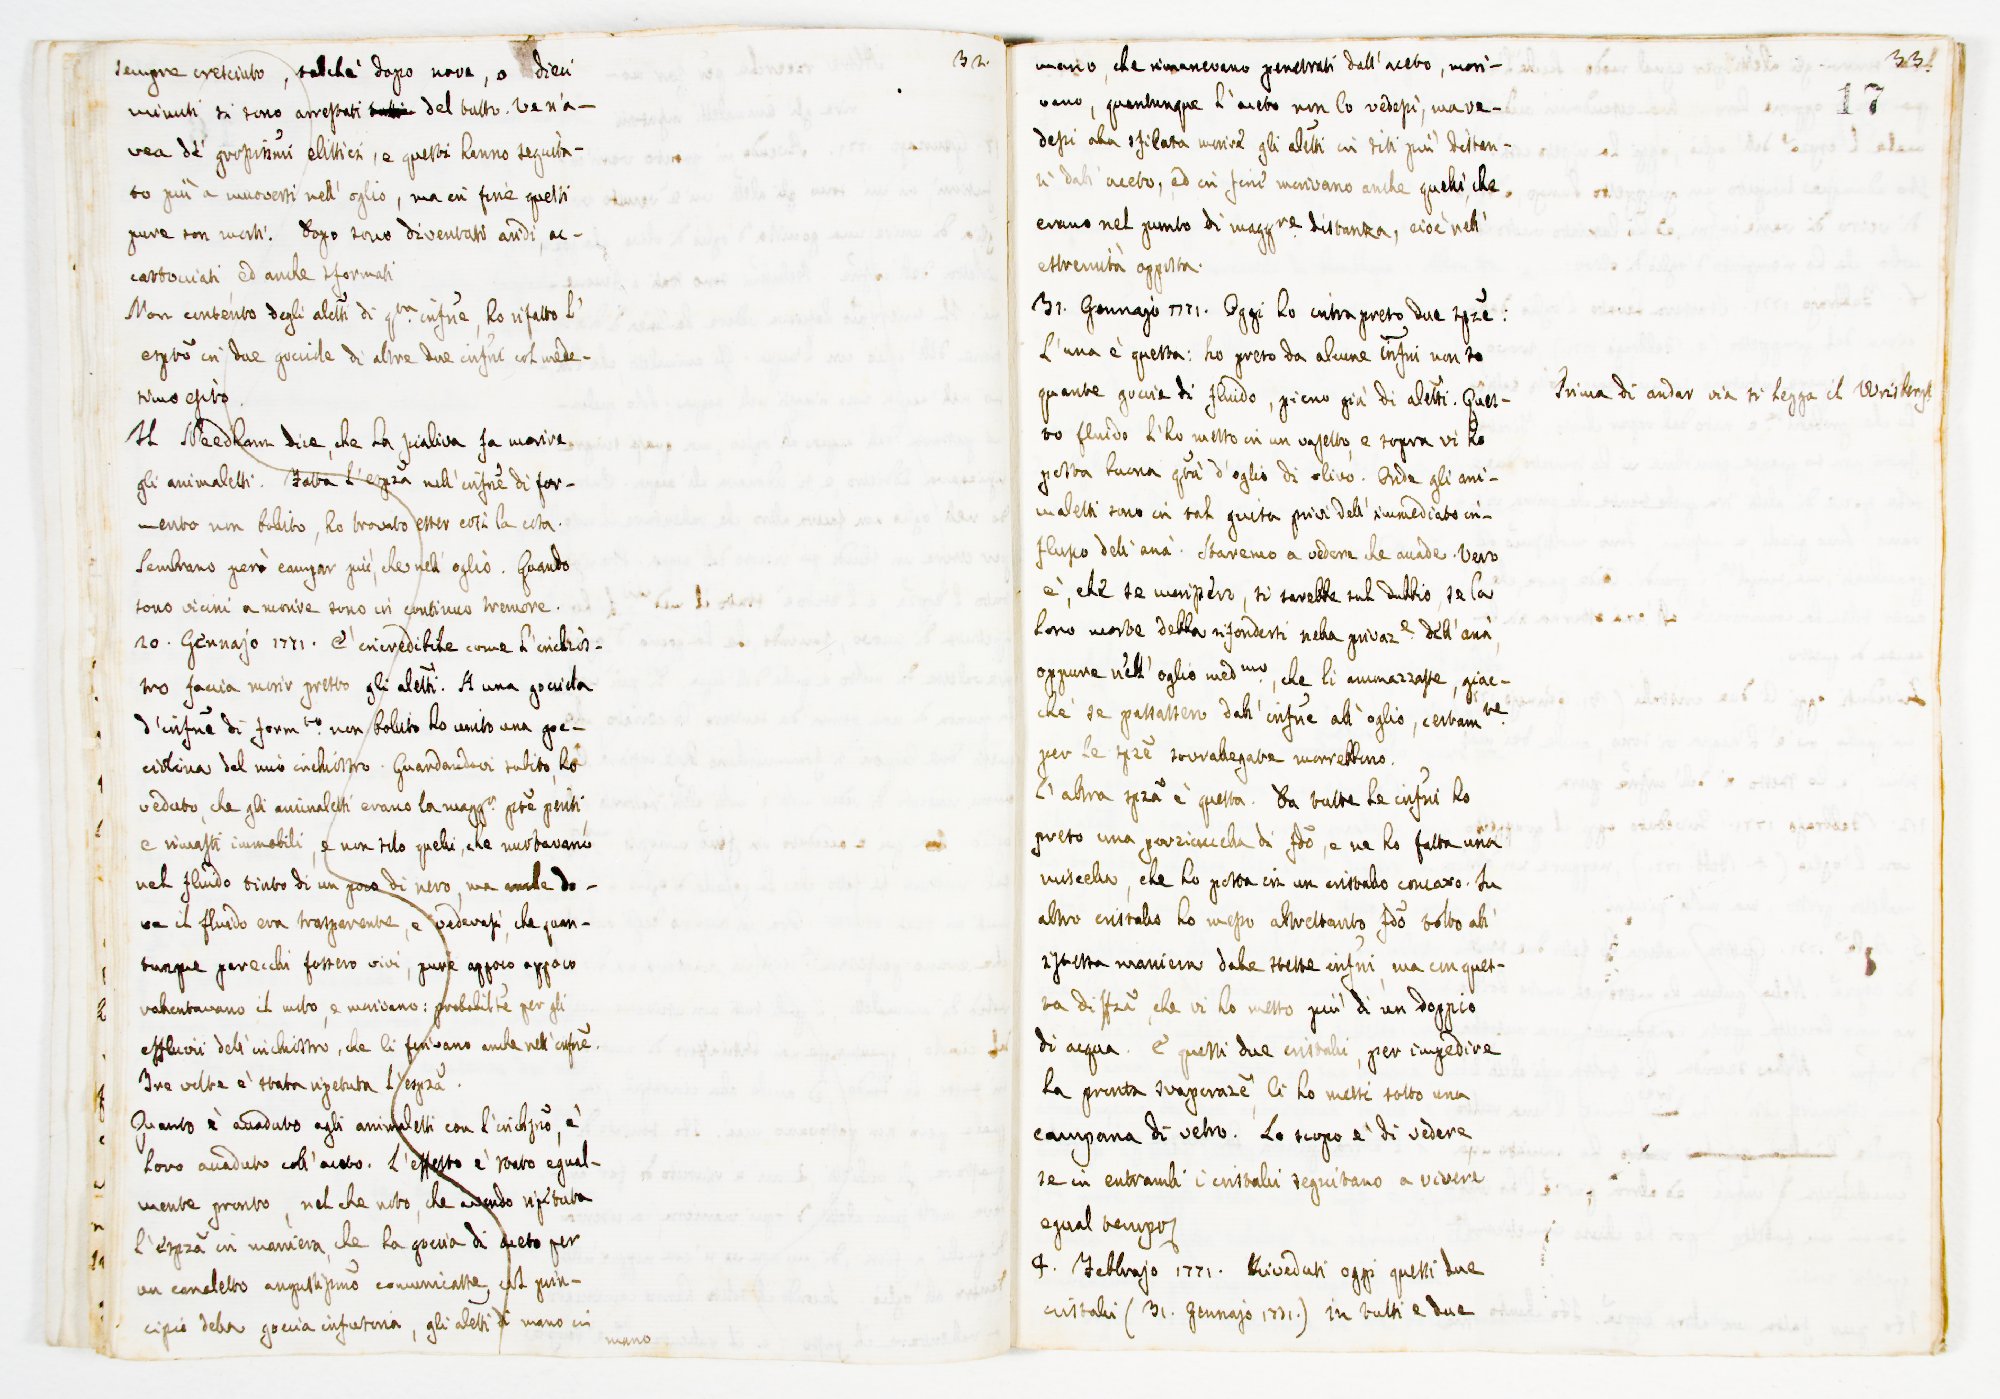 32.
sempre cresciuto, talché dopo nove, o dieci
minuti si sono arrestati tutti del tutto. Ve n'a-
vea de' grossissimi elittici, e questi hanno seguita-
to più a muoversi nell'oglio, ma in fine questi
pure son morti. Dopo sono diventati aridi, ac-
cartocciati ed anche sformati
Non contento degli aletti di qta. infne, ho rifatto l'
esptō in due gocciole di altre due infni col mede-
simo esito.
Il Needham dice, che la scialiva fa morire
gli animaletti. Fatta l'espza nell'infne di for-
mento non bolito, ho trovato esser così la cosa.
Sembrano però campar più, che nell'oglio. Quando
sono vicini a morire sono in continuo tremore.
20. Gennajo 1771. E' incredibile come l'inchios-
tro faccia morir presto gli aletti. A una gocciola
d'infne di formto. non bolito ho unito una goc-
ciolina del mio inchiostro. Guardandovi subito, ho
veduto, che gli animaletti erano la maggr. pte periti,
e rimasti immobili, e non solo quelli, che nuotavano
nel fluido tinto di un poco di nero, ma anche do-
ve il fluido era trasparente, e vedevasi, che quan-
tunque parecchi fossero vivi, pure appoco appoco
rallentavano il moto, e morivano: probabilte per gli
effluvii dell'inchiostro, che li ferivano anche nell'infne.
Tre volte è stata ripetuta l'espza.
Quanto è accaduto agli animaletti con l'inchro, è
loro accaduto coll'aceto. L'effetto è stato egual-
mente pronto, nel che noto, che avendo ripetuta
l'espza in maniera, che la goccia di aceto per
un canaletto angustissimo comunicasse, col prin-
cipio della goccia infusoria, gli aletti di mano in
mano
33.
17
mano, che rimanevano penetrati dall'aceto, mori-
vano, quantunque l'aceto non lo vedessi, ma ve-
dessi alla sfilata morire gli aletti in siti più distan-
ti dall'aceto, ed in fine morivano anche quelli, che
erano nel punto di maggre. distanza, cioè nell'
estremità opposta.
31. Gennajo 1771. Oggi ho intrapreso due spze:
L'una è questa: ho preso da alcune infni non so
quante goccie di fluido, pieno già di aletti. Ques-
to fluido l'ho messo in un vasetto, e sopra vi ho
posta buona qtà d'oglio di olivo. Onde gli ani-
maletti sono in tal guisa privi dell'immediato in-
flusso dell'aria. Staremo a vedere che accade. Vero
è, che se morissero, si sarebbe sul dubbio, se la
loro morte debba rifondersi nella privaze. dell'aria,
oppure nell'oglio medmo., che li ammazzasse, giac-
ché se passassero dall'infne all'oglio, certamte.
per le spze sovrallegate morrebbono.
L'altra spza è questa. Da tutte le infni ho
preso una porzioncella di fdo, e ne ho fatta una
miscella, che ho posta in un cristallo concavo. In
altro cristallo ho messo altrettanto fdo tolto all'
istessa maniera dalle stesse infni, ma con ques-
ta diffza, che vi ho messo più di un doppio
di acqua. E questi due cristalli, per impedire
la pronta svaporaze, li ho messi sotto una
campana di vetro. Lo scopo è di vedere
se in entrambi i cristalli seguitano a vivere
egual tempo
Prima di andar via si legga il Wrisbergh
4. Febbrajo 1771. Riveduti oggi questi due
cristalli (31. Gennajo 1771.) in tutti e due